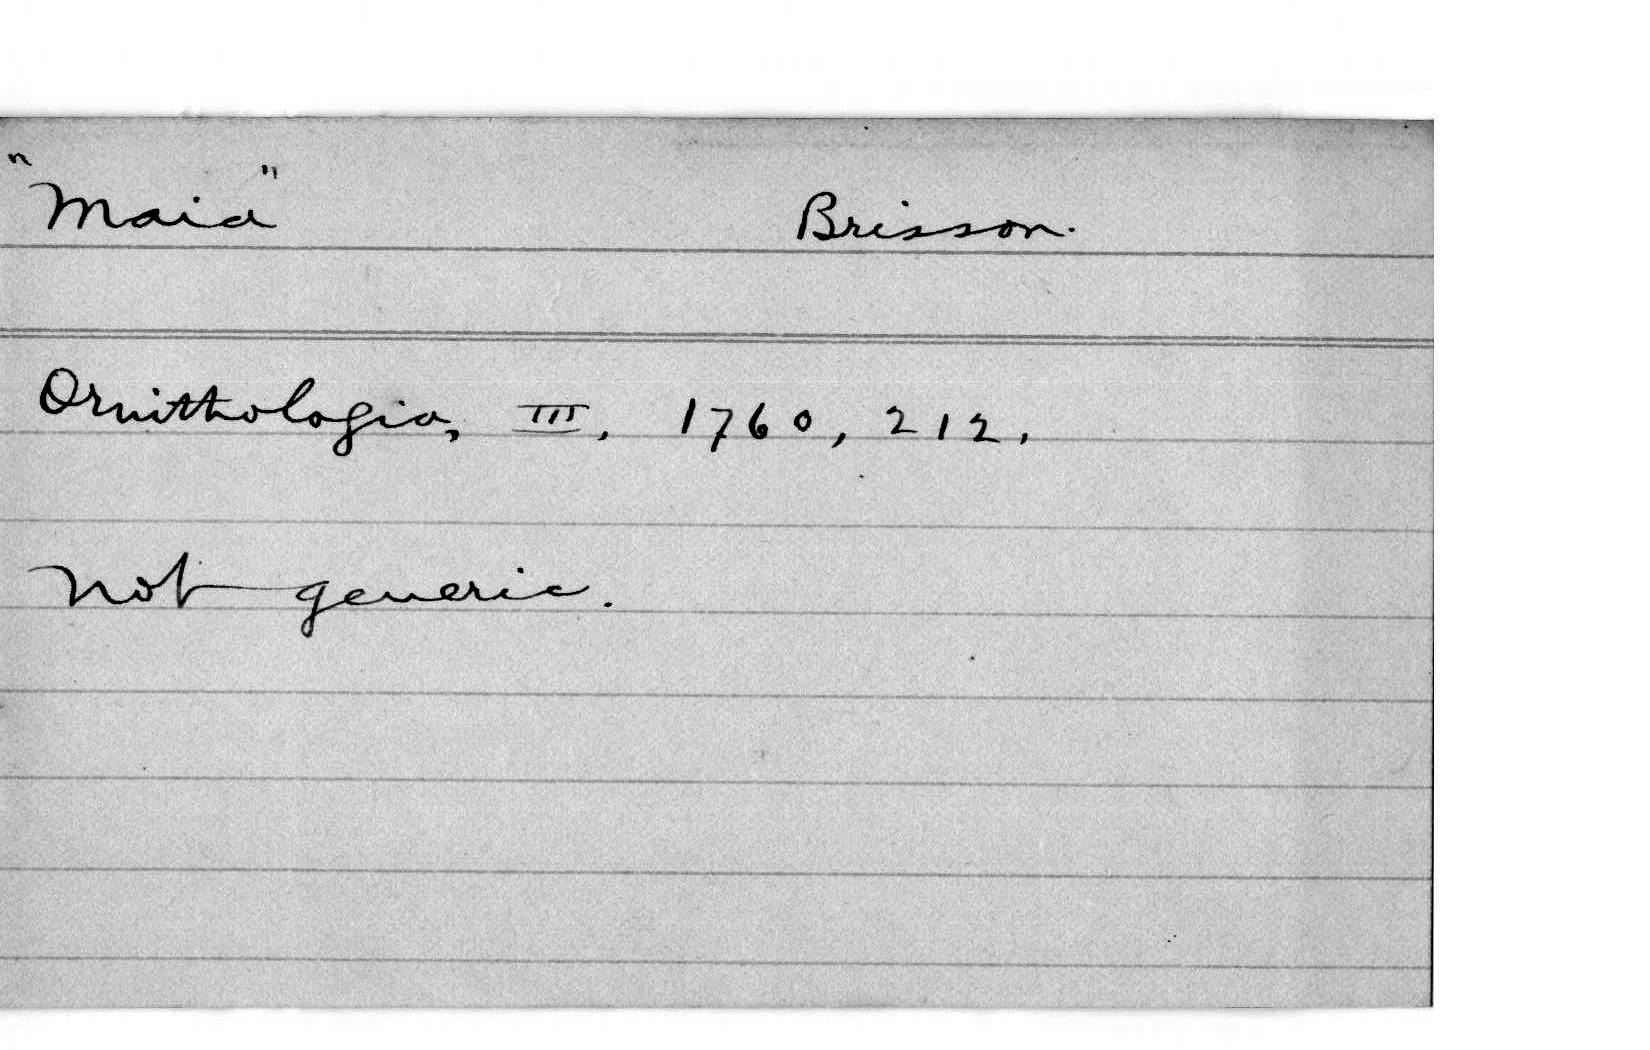 "Maia" Brisson.
Ornithologia, III, 1760, 212.
Not generic.